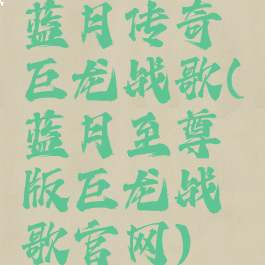 蓝月传奇
巨龙战歌(
蓝月至尊
版巨龙战
歌官网)